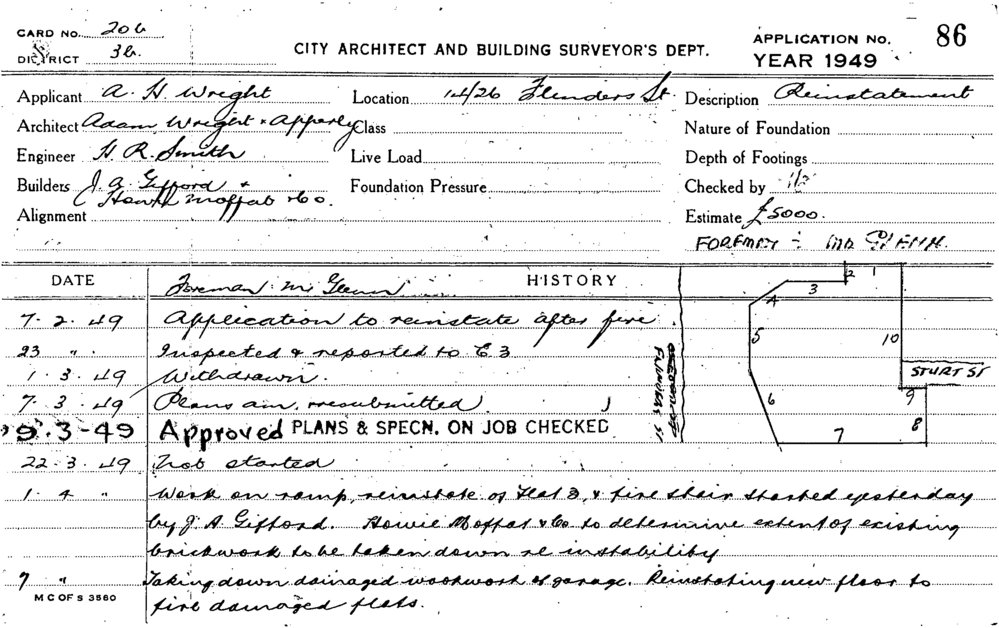 CARD NO. 206
DISTRICT 36.
CITY ARCHITECT AND BUILDING SURVEYOR'S DEPT.
APPLICATION NO. 86
YEAR 1949
Applicant A. H. Wright
Location 14/26 Flinders St.
Description Reinstatement
Architect Adam, Wright & Apperly
Class
Nature of Foundation
Engineer H. R. Smith
Live Load
Depth of Footings
Builders J. A. Gifford &
Howie Moffat & Co.
Foundation Pressure
Checked by
Alignment
Estimate £5000.
FOREMAN - MR GLENN.
DATE
HISTORY
Foreman Mr Glenn
7. 2. 49 Application to reinstate after fire.
23 " Inspected & reported to E.3
1. 3. 49 Withdrawn.
7. 3. 49 Plans am. resubmitted.
9. 3-49 Approved PLANS & SPECN. ON JOB CHECKED
22. 3. 49 Not started
1. 4 " Work on ramp, reinstate of Flat 3, & fire stair started yesterday
by J. A. Gifford. Howie Moffat & Co. to determine extent of existing
brickwork to be taken down re instability
7 " Taking down damaged woodwork of garage. Reinstating new floor to
fire damaged flats.
M C OF S 3560
FLINDERS ST
STURT ST
1
2
3
4
5
6
7
8
9
10